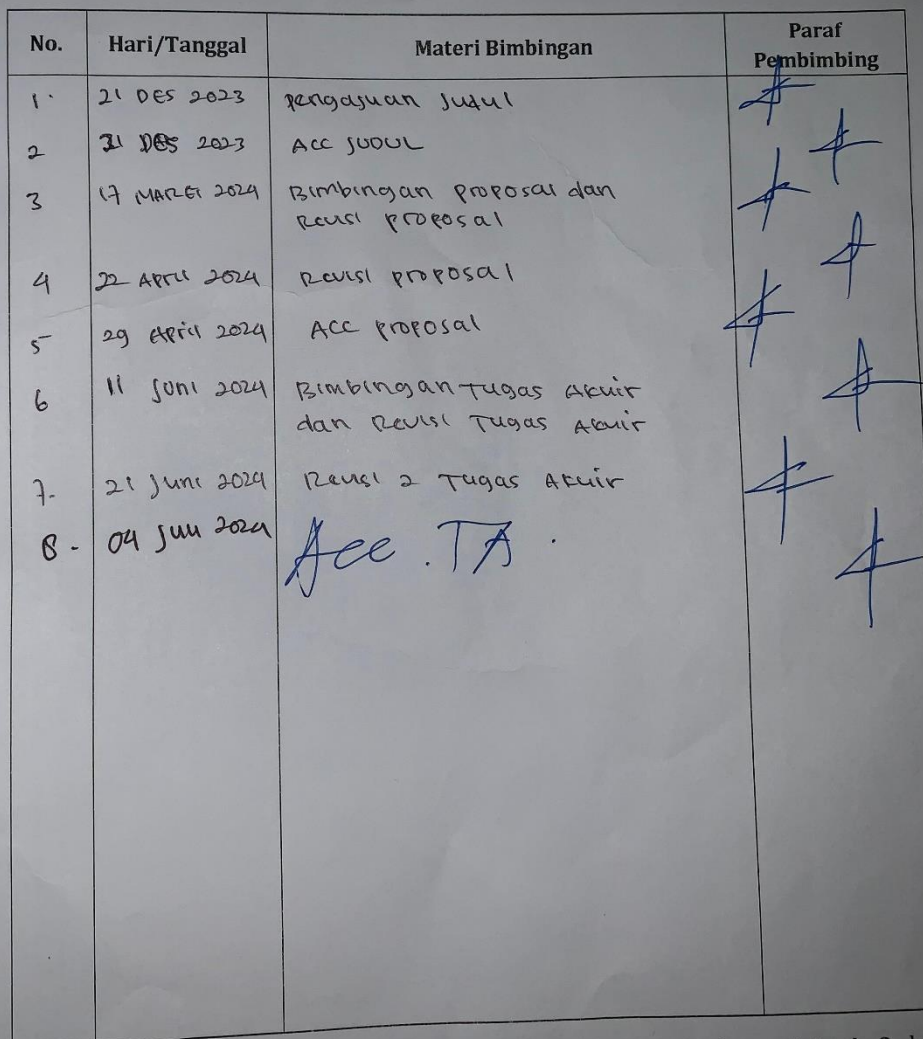 No. Hari/Tanggal Materi Bimbingan Paraf Pembimbing
1. 21 DES 2023 Pengajuan Judul
2 31 DES 2023 ACC JUDUL
3 17 MARET 2024 Bimbingan proposal dan
Revisi proposal
4 22 April 2024 Revisi proposal
5 29 April 2024 ACC proposal
6 11 Juni 2024 Bimbingan Tugas Akhir
dan Revisi Tugas Akhir
7. 21 Juni 2024 Revisi 2 Tugas Akhir
8. 04 Juli 2024 Acc. TA.